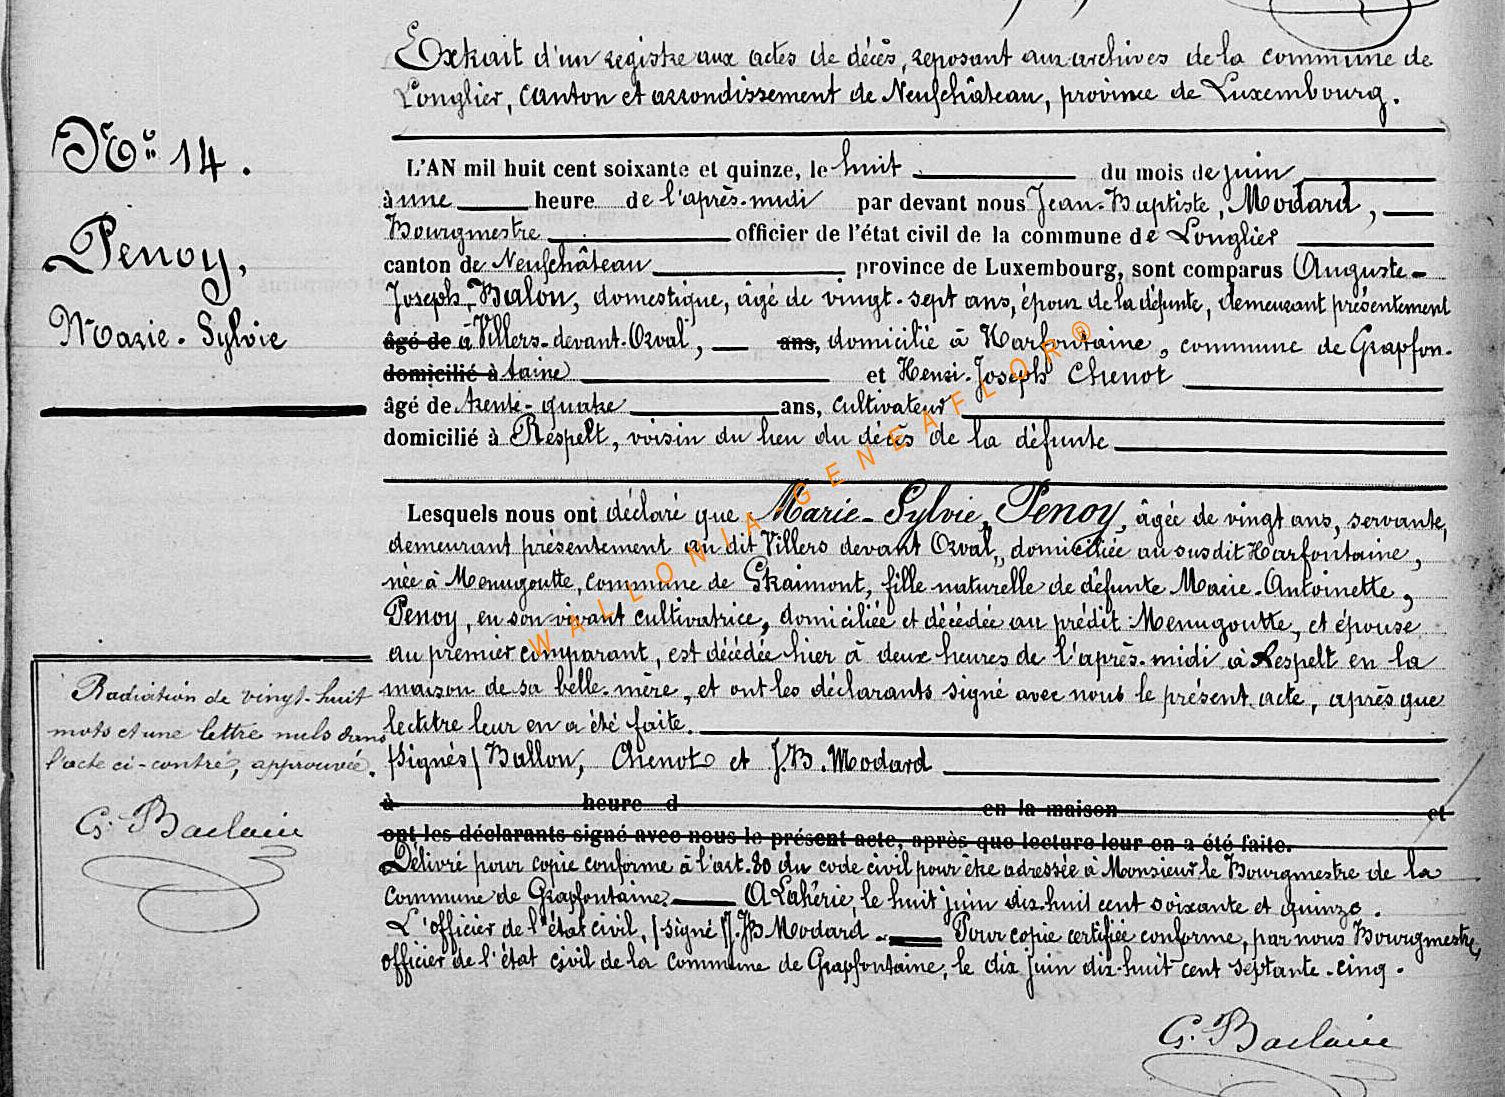 Extrait d'un registre aux actes de décès, reposant aux archives de la commune de
Longlier, canton et arrondissement de Neufchâteau, province de Luxembourg.
No. 14.
Penoy,
Marie-Sylvie
L'AN mil huit cent soixante et quinze, le huit du mois de juin
à une heure de l'après-midi par devant nous Jean-Baptiste, Modard,
Bourgmestre officier de l'état civil de la commune de Longlier
canton de Neufchâteau province de Luxembourg, sont comparus Auguste-
Joseph, Balon, domestique, âgé de vingt-sept ans, époux de la défunte, demeurant présentement
âgé de à Villers-devant-Orval, ans, domicilié à Harfontaine, commune de Grapfon-
domicilié à taine et Henri-Joseph Chenot
âgé de trente-quatre ans, cultivateur
domicilié à Respelt, voisin du lieu du décès de la défunte
Lesquels nous ont déclaré que Marie-Sylvie, Penoy, âgée de vingt ans, servante,
demeurant présentement au dit Villers devant Orval, domiciliée au susdit Harfontaine,
née à Menugoutte, commune de Straimont, fille naturelle de défunte Marie-Antoinette,
Penoy, en son vivant cultivatrice, domiciliée et décédée au prédit Menugoutte, et épouse
au premier comparant, est décédée hier à deux heures de l'après-midi à Respelt en la
maison de sa belle-mère, et ont les déclarants signé avec nous le présent acte, après que
lecture leur en a été faite.
/signés/ Ballon, Chenot et J.B. Modard
à heure d en la maison et
ont les déclarants signé avec nous le présent acte, après que lecture leur en a été faite.
Délivré pour copie conforme à l'art. 80 du code civil pour être adressée à Monsieur le Bourgmestre de la
commune de Grapfontaine. A Lahérie, le huit juin dix-huit cent soixante et quinze.
L'officier de l'état civil, /signé/ J.B Modard. Pour copie certifiée conforme, par nous Bourgmestre,
officier de l'état civil de la commune de Grapfontaine, le dix juin dix-huit cent septante-cinq.
G. Baclain
Radiation de vingt-huit
mots et une lettre nuls dans
l'acte ci-contre, approuvée.
G. Baclain
WALLONIA-GENEAFLOR®